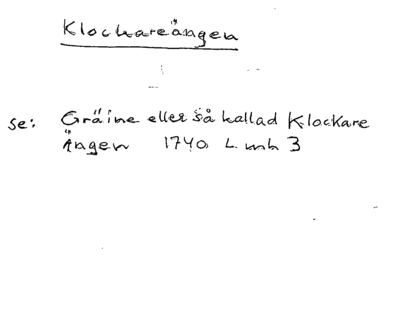 Klockareängen
se: Gräine eller så kallad Klockare
Ängen 1740 L. mh 3